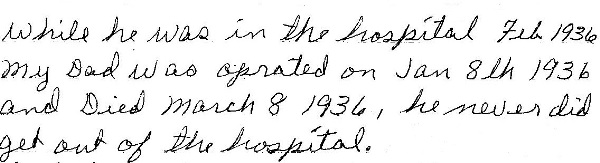 while he was in the hospital Feb 1936
My Dad was oprated on Jan 8th 1936
and Died March 8 1936, he never did
get out of the hospital.